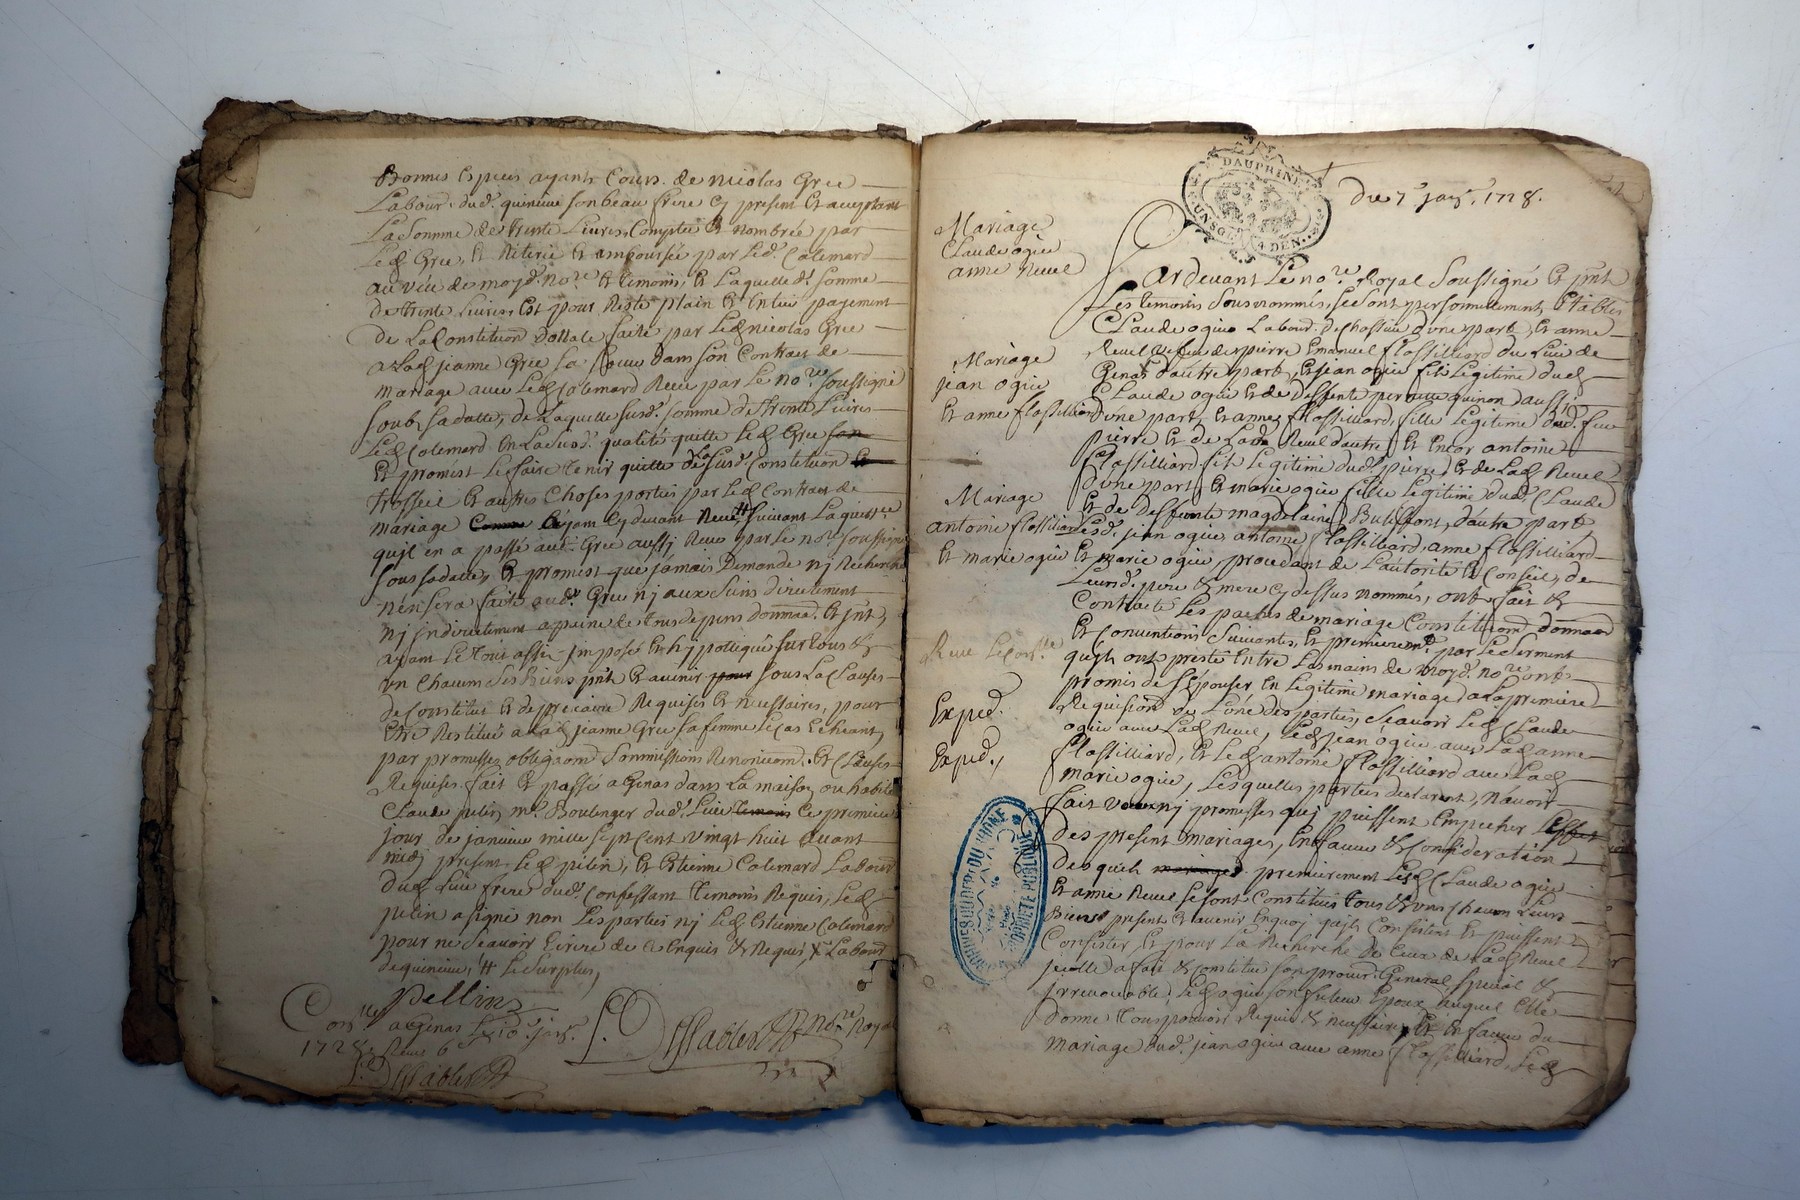 Bonnes Espèces ayants Cours de nicolas Gree
Labour. dud. quincieu son beau frere Cy present Et acceptant
La Somme de trente Livres, Comptée Et nombrée par
Led Gree, Et Retirée Et amboursée par Led. Colemard
au veu de moyd. no.re Et temoins, Et Laquelle d. somme
de trente Livres Est pour Reste plain Et Entier payement
de La Constitution Dottale faite par Led nicolas Gree
a Lad jeanne Gree Sa soeur dans son Contract de
mariage avec Led Colemard Receu par Le no.re soussigné
soub sa datte, de Laquelle susd. somme de trente Livres
Led Colemard En Lad qualité quitte Led Gree
Et promest Le faire tenir quitte de La susd. Constitution
trossel Et autres Choses portées par Led Contract de
mariage Cy devant Receu suivant La quittce
quil en a passé aud. Gree aussy Receu par Le no.re soussigné
sous sa datte, Et promest que jamais Demande nj Recherche
nen sera faite aud. Gree nj aux Siens directement
nj indirectement a peine de tous depens dommag. Et jnt,
un Chacun Ses biens pnts Et avenir sous La Clauses
de Constitut Et de precaire Requises Et necessaires, pour
Etre Restitué a Lad jeanne Gree sa femme Le Cas Echeant,
par promesses obligaons Sommissions Renonciaons. Et Clauses
Requises. fait Et passé a Genas dans La maison ou habite
Claude pelin m.e Boulenger dud. Lieu Ce premier
jour de janvier mille sept cent vingt huit avant
midy present Led pelin, Et Estienne Colemard Labour
dud Lieu frere dud. Confessant temoins Requis, Led
pelin a signé non Les parties nj Led Estienne Colemard
pour ne Scavoir Ecrire de Ce Enquis & Requis, Labour
de quincieu, # Le Surplus,
Pellin
Con.llé a Genas Le 10.e janv.
1728. Receu 6
Du 7.e janv. 1728.
DAUPHINÉ
UN SOL 4 DEN.
Mariage
Claude ogier
anne Revel
Pardevant Le no.re Royal Soussigné Et pnt
Les temoins Sousnommés, Se Sont personnellement Etablis
Claude ogier Labour. de Chassieu d'une part, Et anne
Revel vefve de pierre Emanuel flassilliard du Lieu de
Genas d'autre part, Et jean ogier fils Legitime dud
Claude ogier Et de deffente quinon d'aussy
d'une part, Et anne flassilliard, fille Legitime dud. feu
pierre Et de Lad. Revel d'autre Et Encor antoine
flassilliard fils Legitime dud. pierre Et de Lad Revel
d'une part Et marie ogier fille Legitime dud. Claude
Et de deffente magdelaine d'autre part
Mariage
jean ogier
Et anne flassilliard
Mariage
antoine flassilliard
Et marie ogier
Lesd. jean ogier antoine flassilliard, anne flassilliard
Et marie ogier procedant de L'autorité Et Conseil, de
Leursd. pere & mere Cy dessus nommés, ont fait &
Contracté Les pactes de mariage Constitutions donnaon
Et Conventions Suivantes, Et premierem.t par Le serment
quils ont presté Entre Les mains de moyd. no.re ont
promis de S'épouser En Legitime mariage a La premiere
Requisition de L'une des parties, Scavoir Led Claude
ogier avec Lad Revel, Led jean ogier avec Lad anne
flassilliard, Et Led antoine flassilliard avec Lad
marie ogier, Lesquelles parties declarent, n'avoir
fait nj promesses quj puissent Empecher Leffet
des present mariages, En faveur & Consideration
desquels premierement Led Claude ogier
Et anne Revel se sont Constitués tous & uns Chacun Leurs
Biens present Et avenir Enquoj quils Consistent Et puissent
Consister, Et pour La Recherche de Ceux de Lad Revel
jcelle a fait & Constitué son procur. General, special &
jrrevocable, Led ogier son futeur Epoux auquel Elle
donne tous pouvoir Requis & necessaires, Et En faveur du
mariage dud. jean ogier avec anne flassilliard, Led
Receu Le Con.lle
Exped.
Exped.,
ARCHIVES DU DEP.T DU RHONE
PROPRIÉTÉ PUBLIQUE